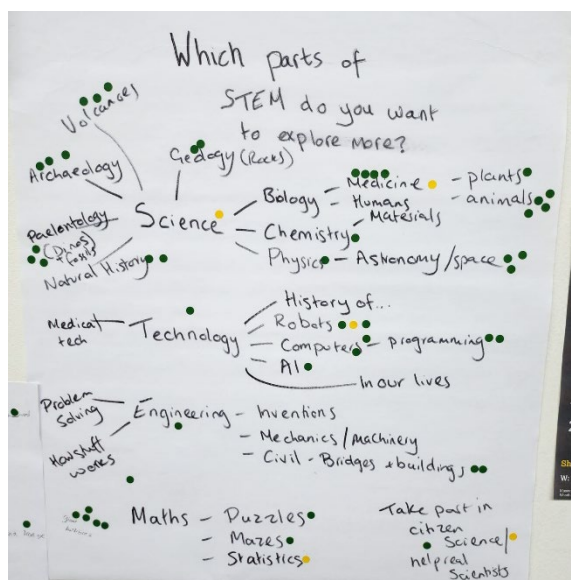 Which parts of
STEM do you want
to explore more?
Volcanoes
Archaeology
Geology (Rocks)
Paelontology
(Dinos
+ fossils
Natural History
Science
Biology
Medicine
Humans
- plants
- animals
Chemistry
Materials
Physics - Astronomy/space
Medical
tech
Technology
History of...
Robots
Computers - programming
AI
In our lives
Problem
Solving
How stuff
works
Engineering - Inventions
- Mechanics/Machinery
- Civil - Bridges + buildings
Maths - Puzzles
- Mazes
- Statistics
Take part in
citizen
Science/
help real
Scientists
Sh
W: